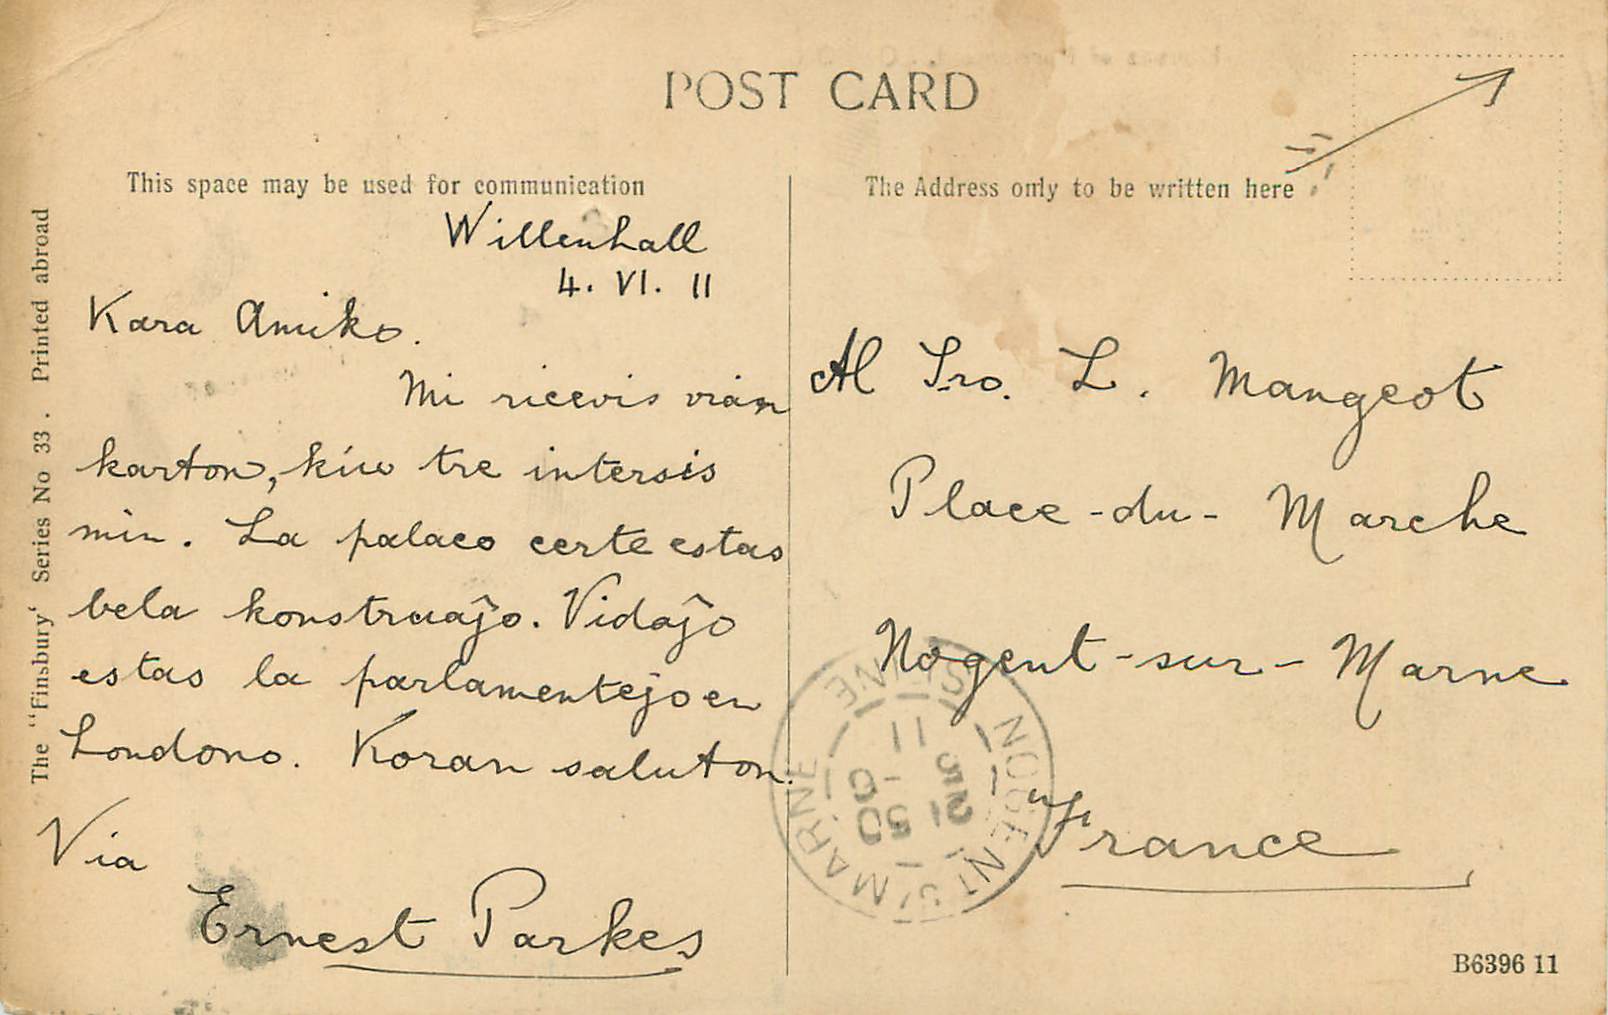 POST CARD
This space may be used for communication
The Address only to be written here
The "Finsbury' Series No 33 . Printed abroad
Willenhall
4. VI. 11
Kara Amiko.
Mi ricevis vian
karton, kiu tre intersis
min. La palaco certe estas
bela konstruaĵo. Vidaĵo
estas la parlamentejo en
Londono. Koran saluton.
Via
Ernest Parkes
Al Sro. L. Mangeot
Place-du-Marche
Nogent-sur-Marne
France
NOGENT S/ MARNE
SEINE
21 5
11
B6396 11